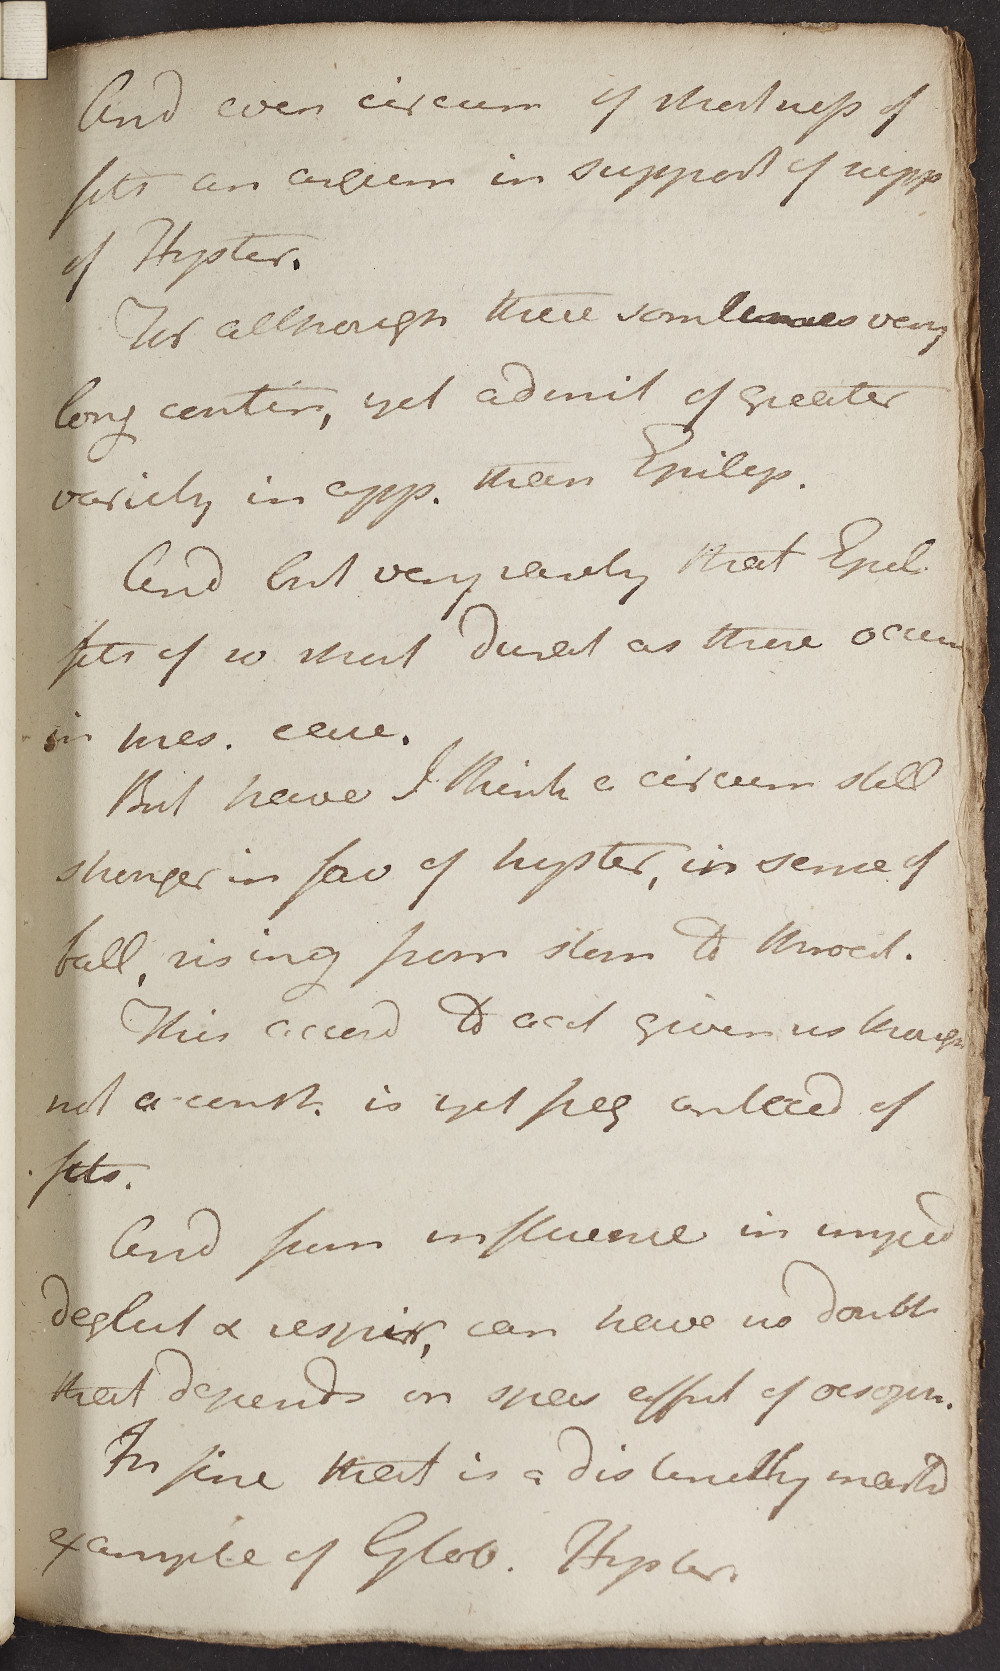 And even circum of shortness of
fits an argum in support of supp
of Hyster.
For although these somtimes very
long contin, yet admit of greater
variety in app. than Epilep.
And but very rarely that Epil
fits of so short durat as those occurr
in pres. case.
But have I think a circum still
stronger in fav of hyster, in sense of
ball, rising from stom to throat.
This accord to acct given us though
not a const. is yet freq anteced of
fits.
And from influence in imped
deglut & respir, can have no doubt
that depends on spas affect of oesoph.
In fine that is a distinctly markd
example of Glob. Hyster.